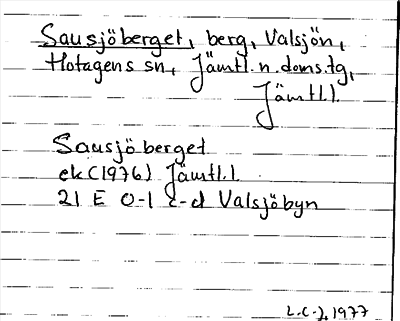 Sausjöberget, berg, Valsjön,
Hotagens sn, Jämtl. n. doms. tg,
Jämtl. l.
Sausjöberget
ek (1976) Jämtl. l.
21 E 0-1 c-d Valsjöbyn
L.C-J, 1977